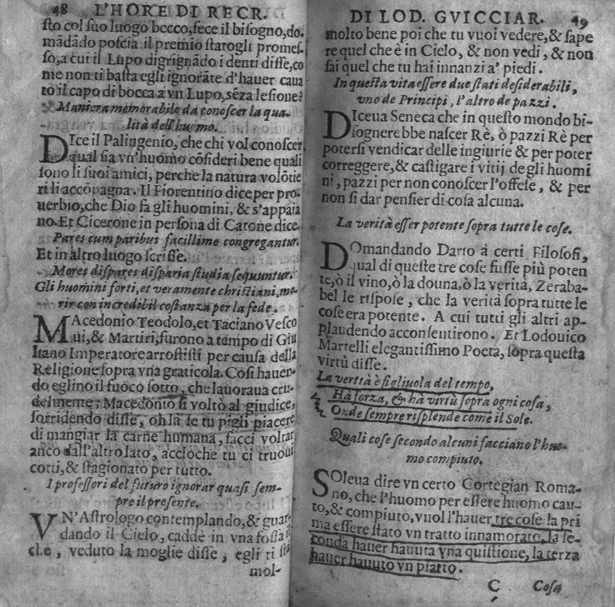 48 L'HORE DI RECR.
sto col suo luogo becco, fece il bisogno, do.
mādādo poscia il premio statogli promes-
so, a cui il Lupo digrignādo i denti disse, co
me non ti basta egli ignorāte d'hauer caua
to il capo di bocca a vn Lupo, sēza lesione?
Maniera memorabile da conoscer la qua-
lità dell'huomo.
DIce il Palingenio, che chi vol conoscer
qual sia vn'huomo cōsideri bene quali
sono li suoi amici, perche la natura volōtie
ri li accōpagna. Il Fiorentino dice per pro-
uerbio, che Dio fa gli huomini, & s'appaia
no. Et Cicerone in persona di Catone dice.
Pares cum paribus facillime congregantur.
Et in altro luogo scrisse.
Mores dispares disparia studia sequuntur.
Gli huomini forti, et veramente christiani, mo-
rir con incredibil costanza per la fede.
MAcedonio Teodolo, et Taciano Vesco
ui, & Martiri, furono a tāmpo di Giu
liano Imperatore arrostiti per causa della
Religione sopra vna graticola. Così hauen-
do eglino il fuoco sotto, che lauoraua cru-
delmente; Macedonio si voltò al giudice,
sorridendo disse, oh là se tu pigli piacere
di mangiar la carne humana, facci voltar
anco dall'altro lato, accioche tu ci truoui
cotti, & stagionato per tutto.
I professori del futuro ignorar quasi sem-
pre il presente.
VN'Astrologo contemplando, & guar-
dando il Cielo, cadde in vna fossa il
che, veduto la moglie disse, egli ti sta
mol-
DI LOD. GVICCIAR. 49
molto bene poi che tu vuoi vedere, & sape
re quel che è in Cielo, & non vedi, & non
sai quel che tu hai innanzi a' piedi.
In questa vita essere due stati desiderabili,
vno de Principi, l'altro de pazzi.
DIceua Seneca che in questo mondo bi-
sognerebbe nascer Rè, ò pazzi Rè per
potersi vendicar delle ingiurie & per poter
correggere, & castigare i vitij degli huomi
ni, pazzi per non conoscer l'offese, & per
non si dar pensier di cosa alcuna.
La verità esser potente sopra tutte le cose.
DOmandando Dario à certi Filosofi,
qual di queste tre cose fusse più poten
te, ò il vino, ò la donna, ò la verità, Zeraba-
bel le rispose, che la verità sopra tutte le
cose era potente. A cui tutti gli altri ap-
plaudendo acconsentirono. Et Lodouico
Martelli elegantissimo Poeta, sopra questa
virtù disse.
La verità è figliuola del tempo,
Hà forza, & hà virtù sopra ogni cosa,
Onde sempre risplende come il Sole.
Quali cose secondo alcuni facciano l'huo-
mo compiuto.
SOleua dire vn certo Cortegian Roma-
no, che l'huomo per essere huomo cau-
to, & compiuto, vuol l'hauer tre cose la pri
ma essere stato vn tratto innamorato, la se-
conda hauer hauuta vna quistione, la terza
hauer hauuto vn piatto.
C Cosa